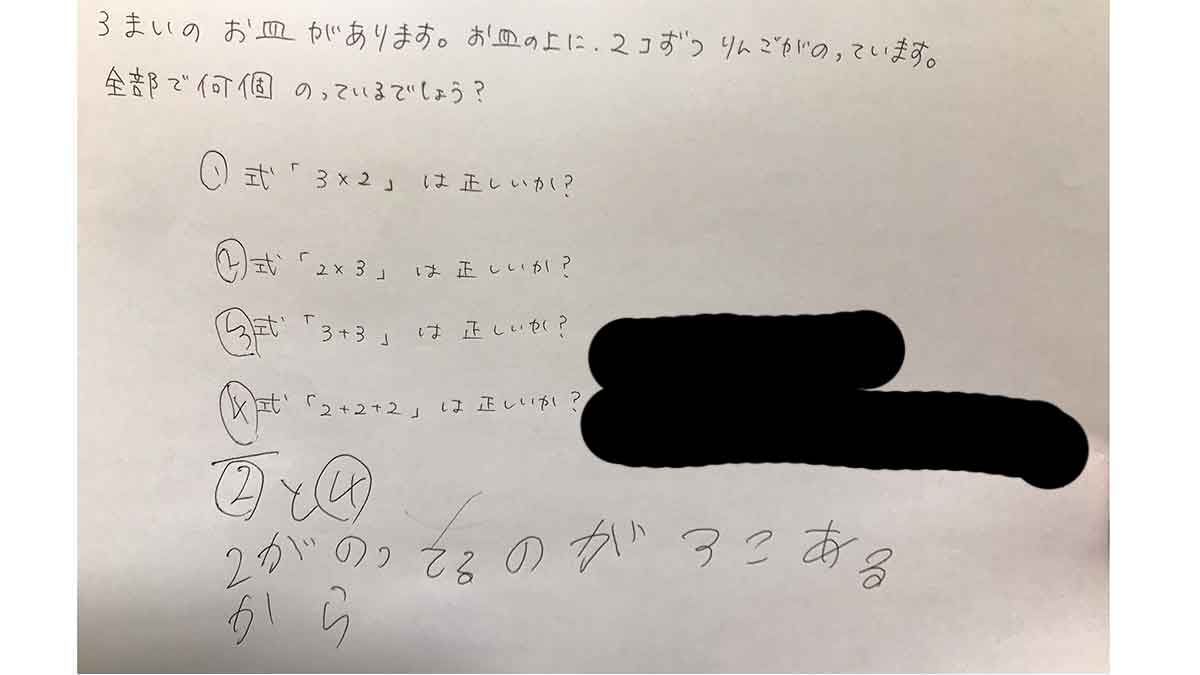 3まいのお皿があります。お皿の上に、2コずつりんごがのっています。
全部で何個のっているでしょう?
① 式「3×2」は正しいか?
② 式「2×3」は正しいか?
③ 式「3+3」は正しいか?
④ 式「2+2+2」は正しいか?
②と④
2がのってるのが3こある
から